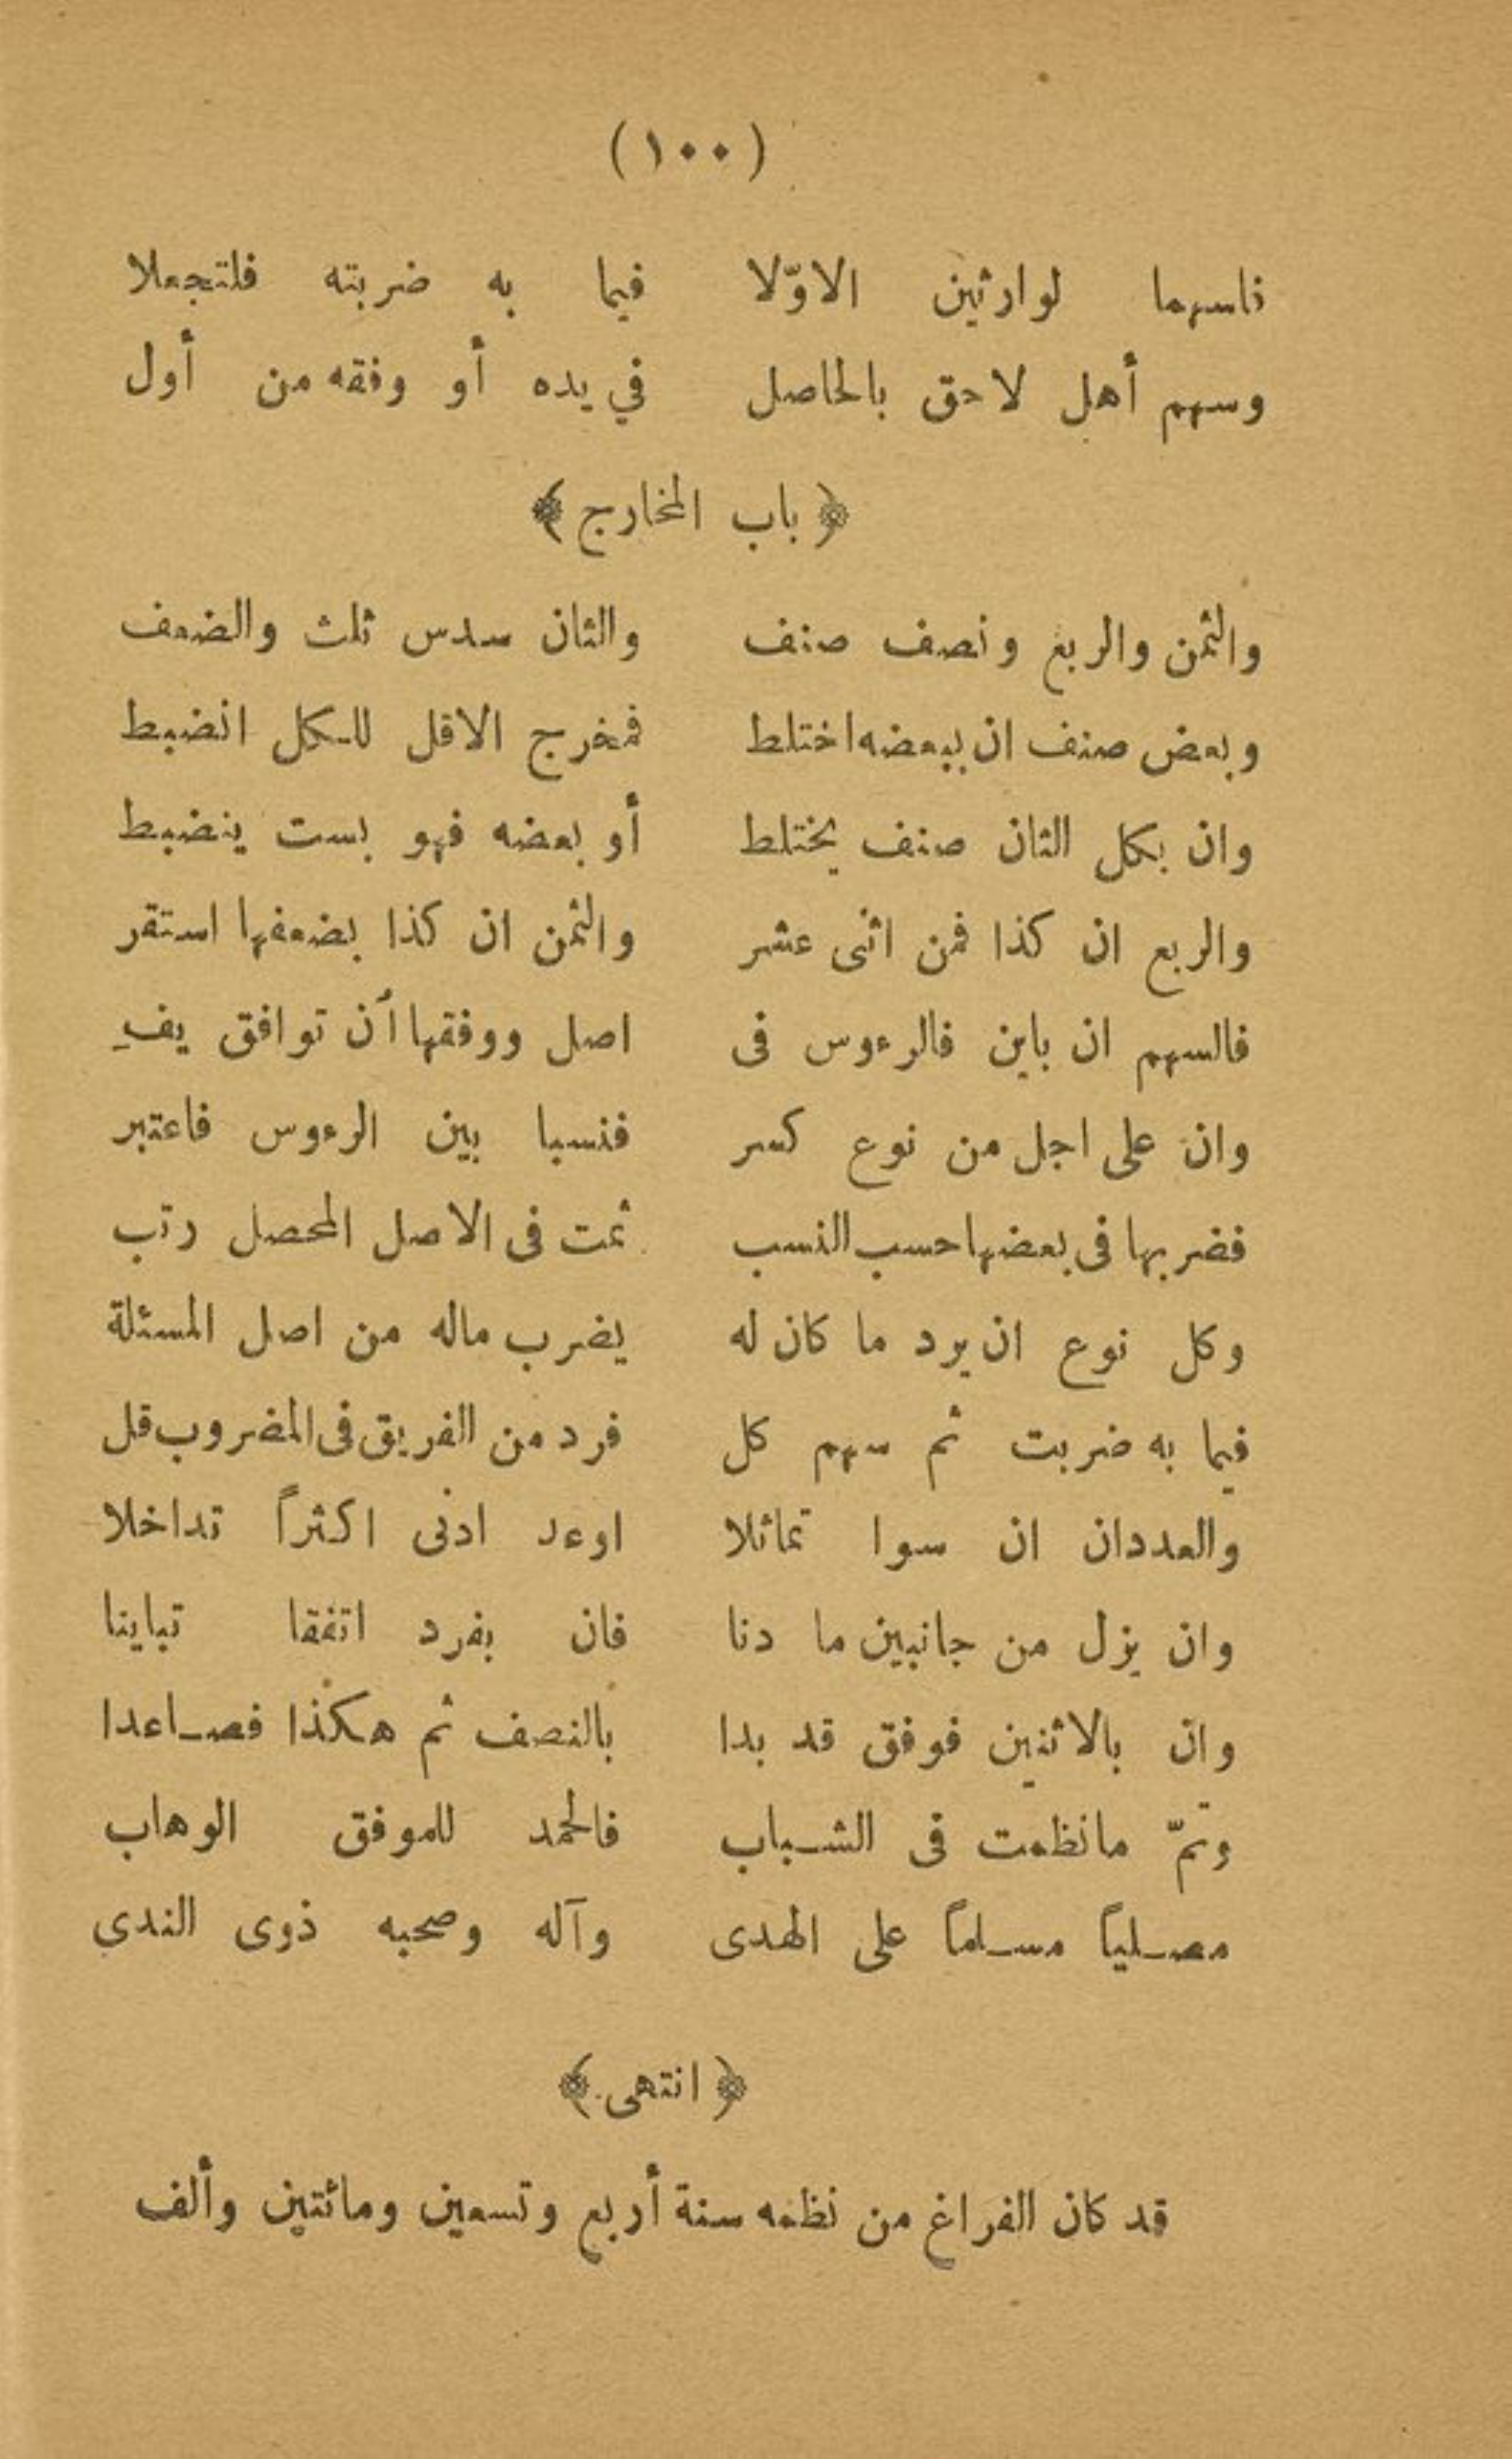 (١٠٠)
فاسهما لوارثين الاوّلا فيما به ضربته فلتجعلا
وسهم أهل لاحق بالحاصل في يده أو وفقه من أول
﴿ باب المخارج ﴾
والثمن والربع ونصف صنف والثان سدس ثلث والضعف
وبعض صنف ان ببعضه اختلط فمخرج الاقل للكل انضبط
وان بكل الثان صنف يختلط أو بعضه فهو بست ينضبط
والربع ان كذا فمن اثنى عشر والثمن ان كذا بضعفها استقر
فالسهم ان باين فالرءوس فى اصل ووفقها أن توافق يفِ
وان على اجل من نوع كسر فنسبا بين الرءوس فاعتبر
فضربها فى بعضها حسب النسب ثمت فى الاصل المحصل رتب
وكل نوع ان يرد ما كان له يضرب ماله من اصل المسئلة
فيما به ضربت ثم سهم كل فرد من الفريق فى المضروب قل
والعددان ان سوا تماثلا اوعد ادنى اكثراً تداخلا
وان يزل من جانبين ما دنا فان بفرد اتفقا تباينا
وان بالاثنين فوفق قد بدا بالنصف ثم هكذا فصاعدا
وتمّ مانظمت فى الشباب فالحمد للموفق الوهاب
مصلياً مسلماً على الهدى وآله وصحبه ذوى الندى
﴿ انتهى ﴾
قد كان الفراغ من نظمه سنة أربع وتسعين ومائتين وألف